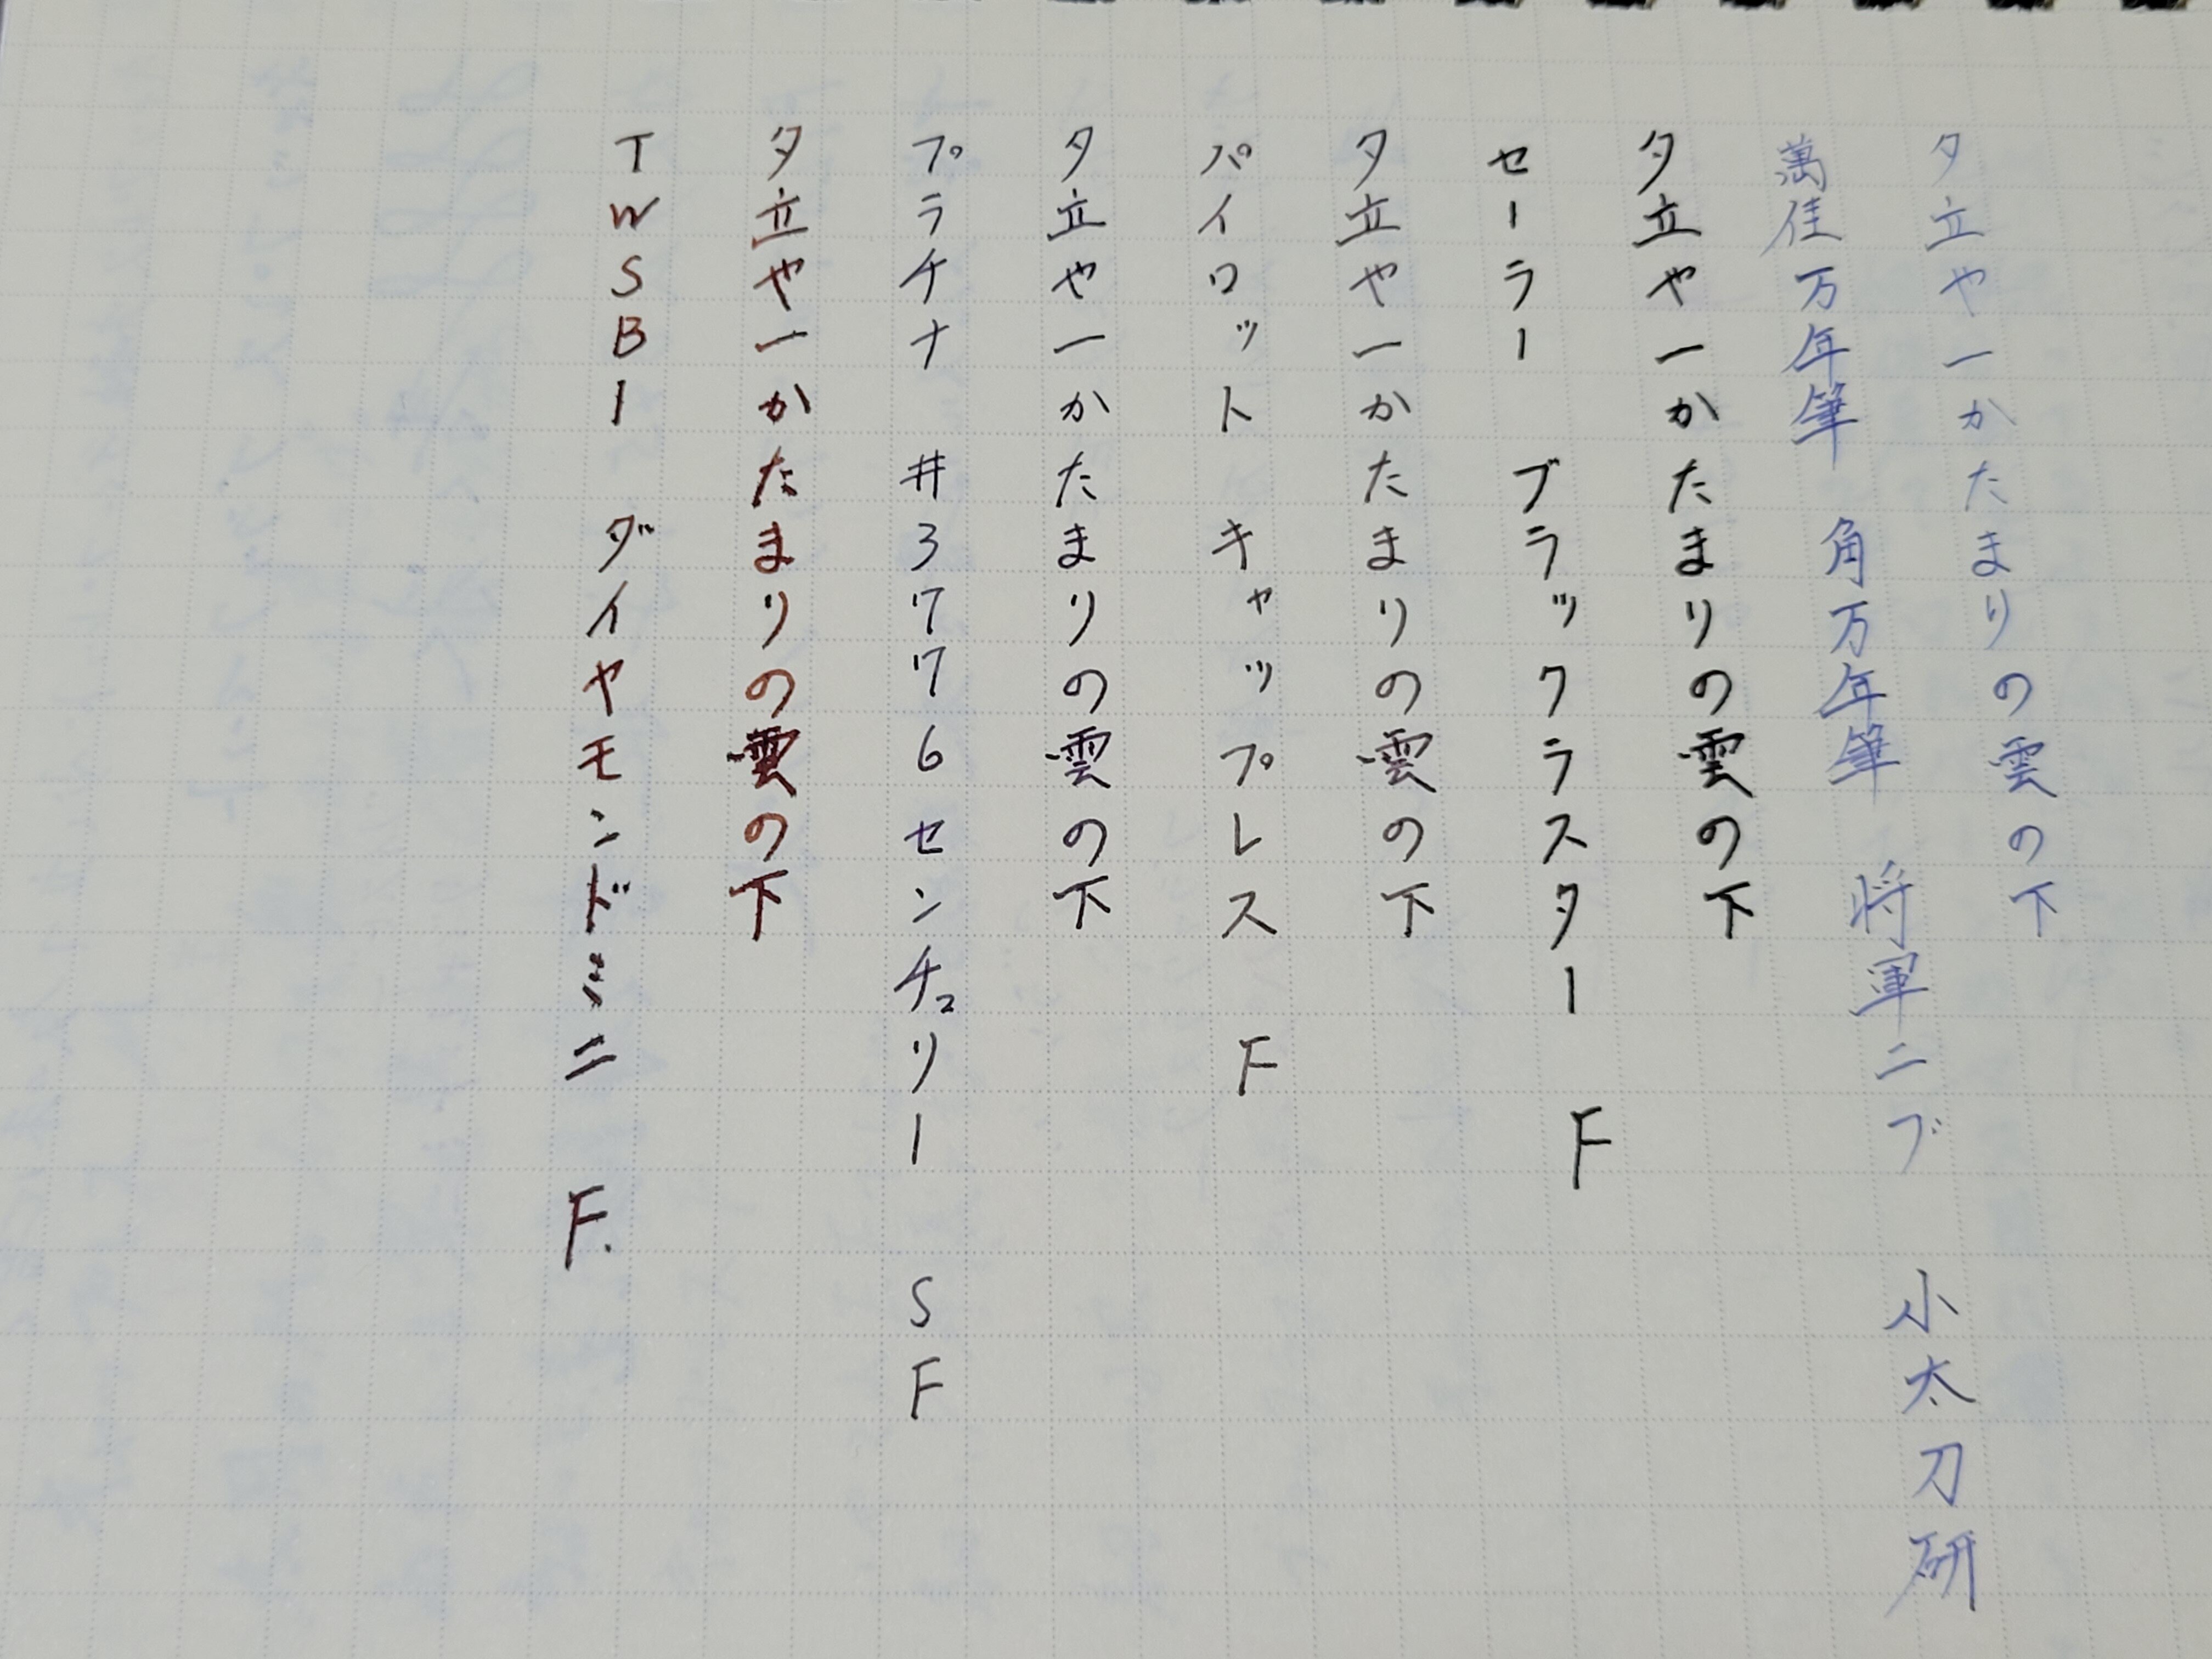 夕立や一かたまりの雲の下
萬佳万年筆 角万年筆 将軍ニブ 小太刀研
夕立や一かたまりの雲の下
セーラー ブラックラスター F
夕立や一かたまりの雲の下
パイロット キャップレス F
夕立や一かたまりの雲の下
プラチナ #3776センチュリー SF
夕立や一かたまりの雲の下
TWSBI ダイヤモンドミニ F.